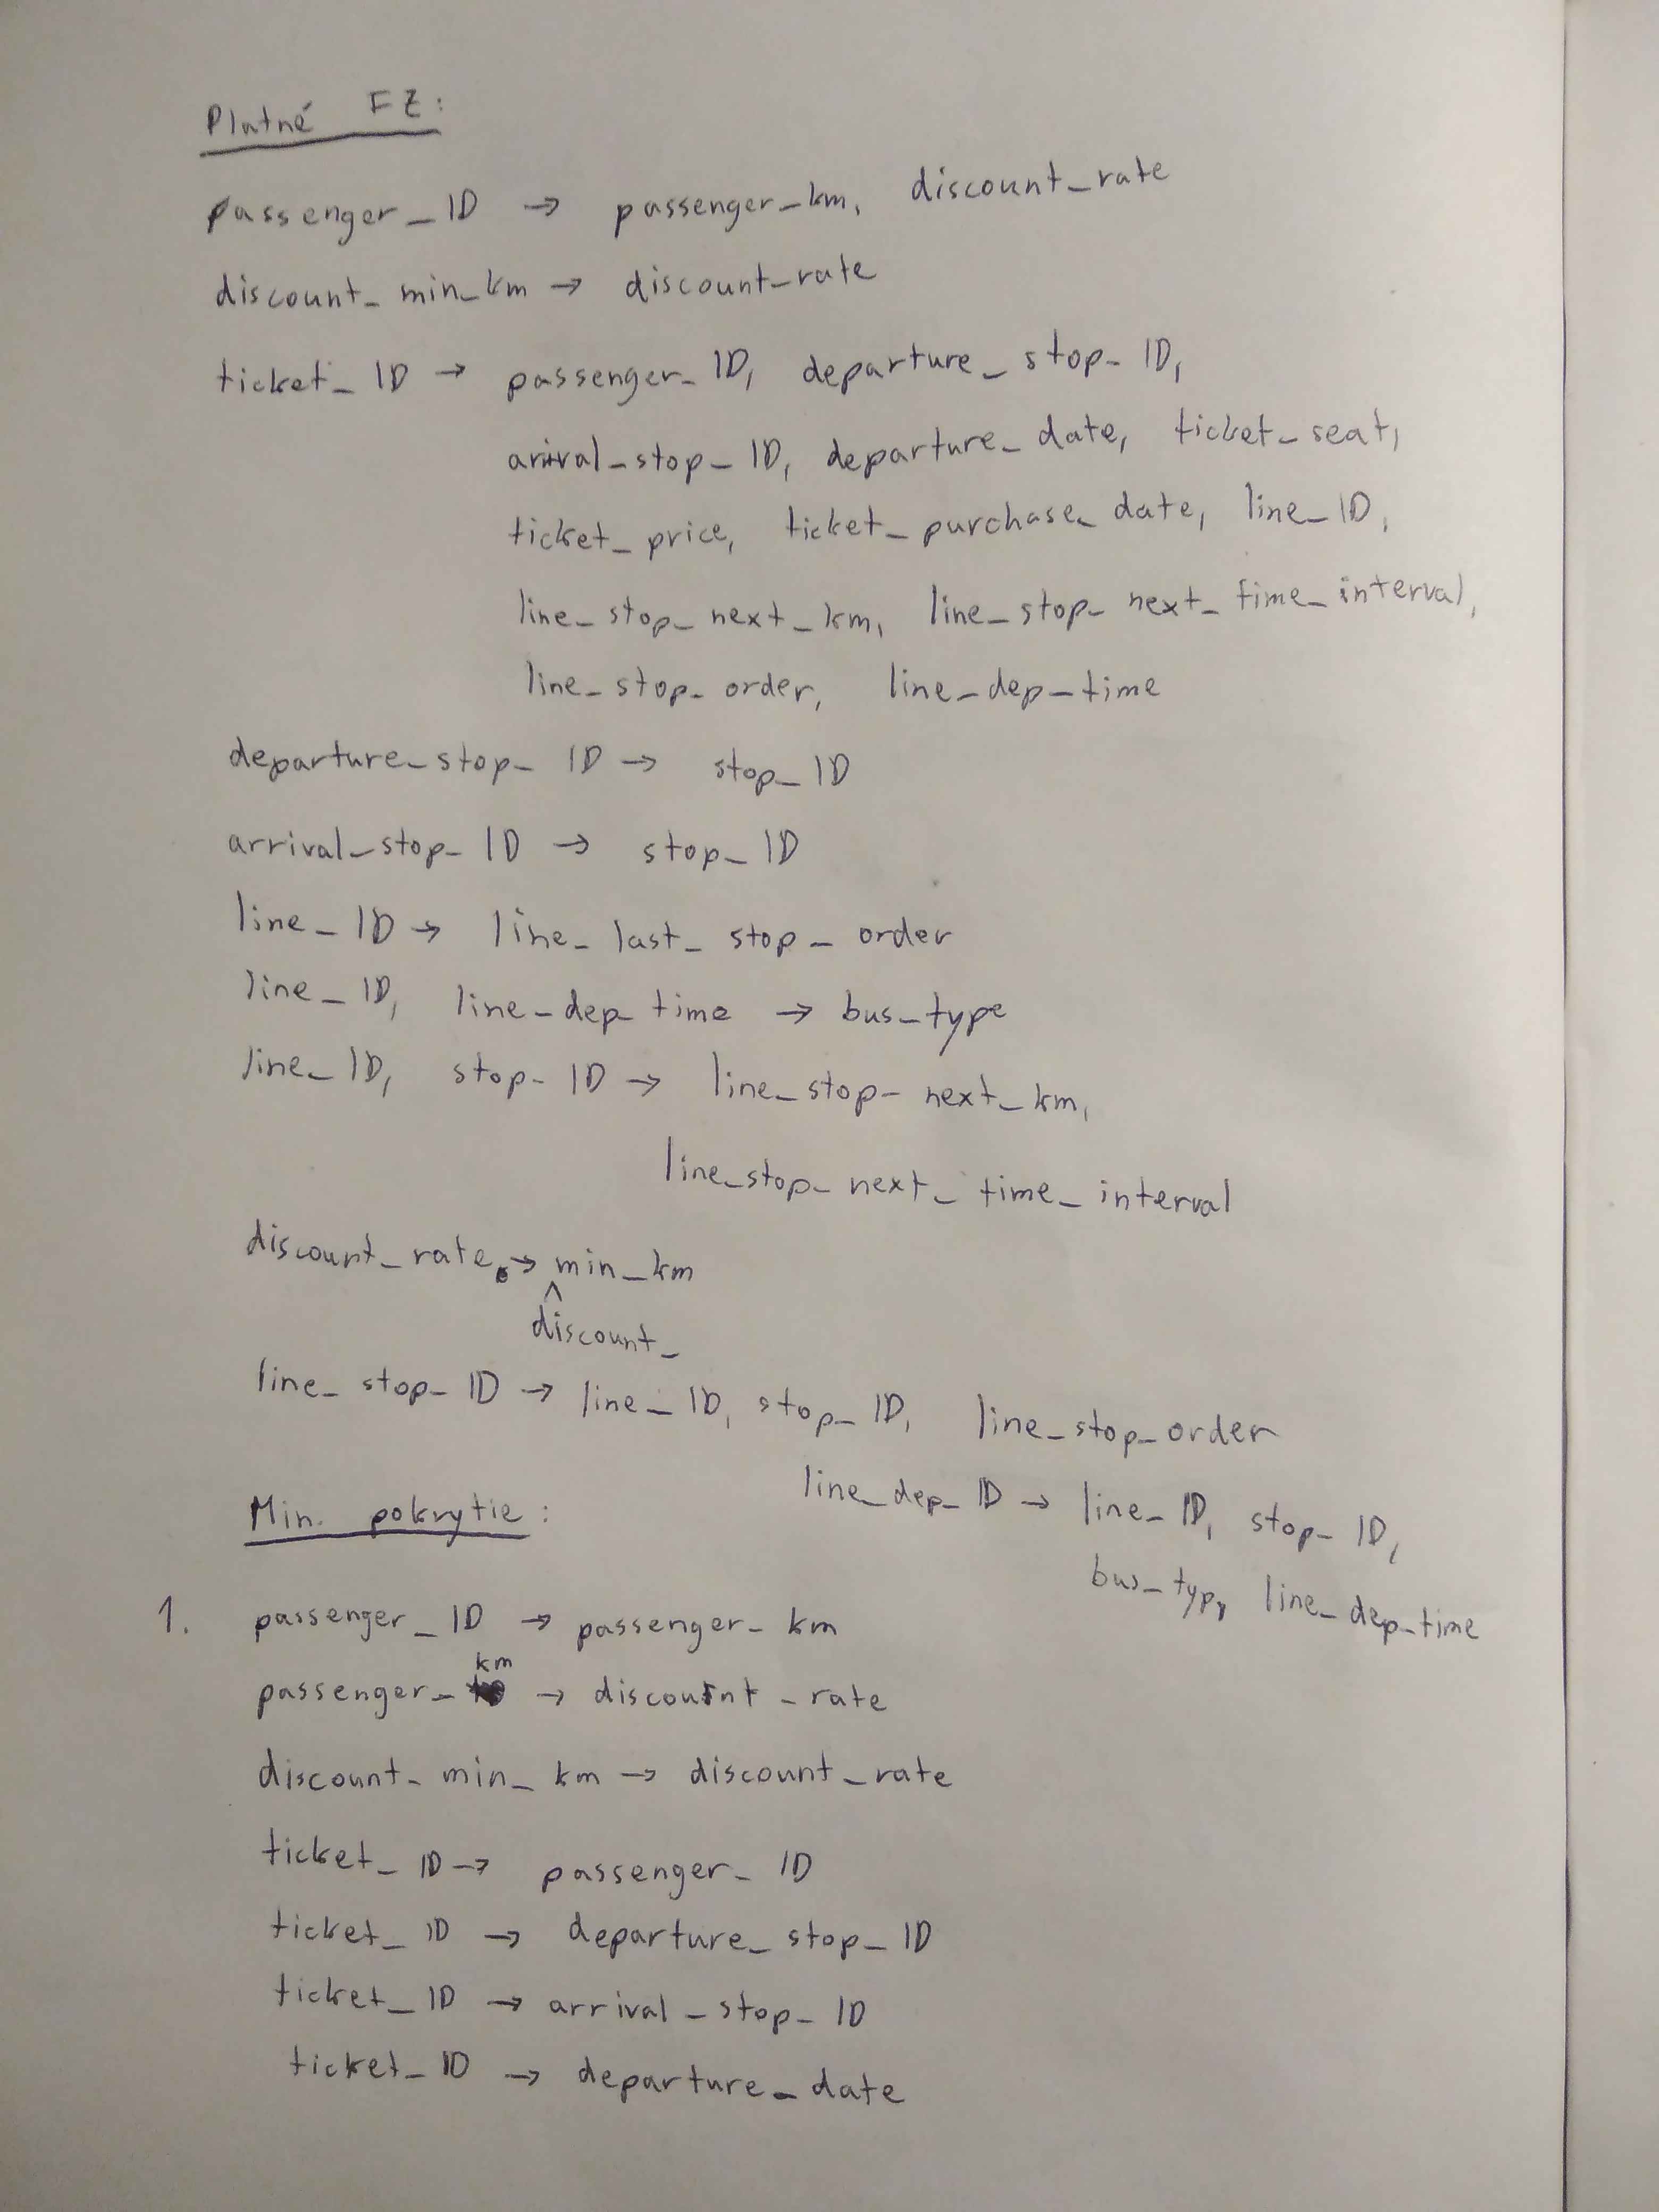 Platné FZ:
passenger_ID → passenger_km, discount_rate
discount_min_km → discount_rate
ticket_ID → passenger_ID, departure_stop_ID,
arrival_stop_ID, departure_date, ticket_seat,
ticket_price, ticket_purchase_date, line_ID,
line_stop_next_km, line_stop_next_time_interval,
line_stop_order, line_dep_time
departure_stop_ID → stop_ID
arrival_stop_ID → stop_ID
line_ID → line_last_stop_order
line_ID, line_dep_time → bus_type
line_ID, stop_ID → line_stop_next_km,
line_stop_next_time_interval
discount_rate → min_km
^
discount_
line_stop_ID → line_ID, stop_ID, line_stop_order
line_dep_ID → line_ID, stop_ID,
bus_typ, line_dep_time
Min. pokrytie:
1. passenger_ID → passenger_km
km
passenger_ → discount_rate
discount_min_km → discount_rate
ticket_ID → passenger_ID
ticket_ID → departure_stop_ID
ticket_ID → arrival_stop_ID
ticket_ID → departure_date